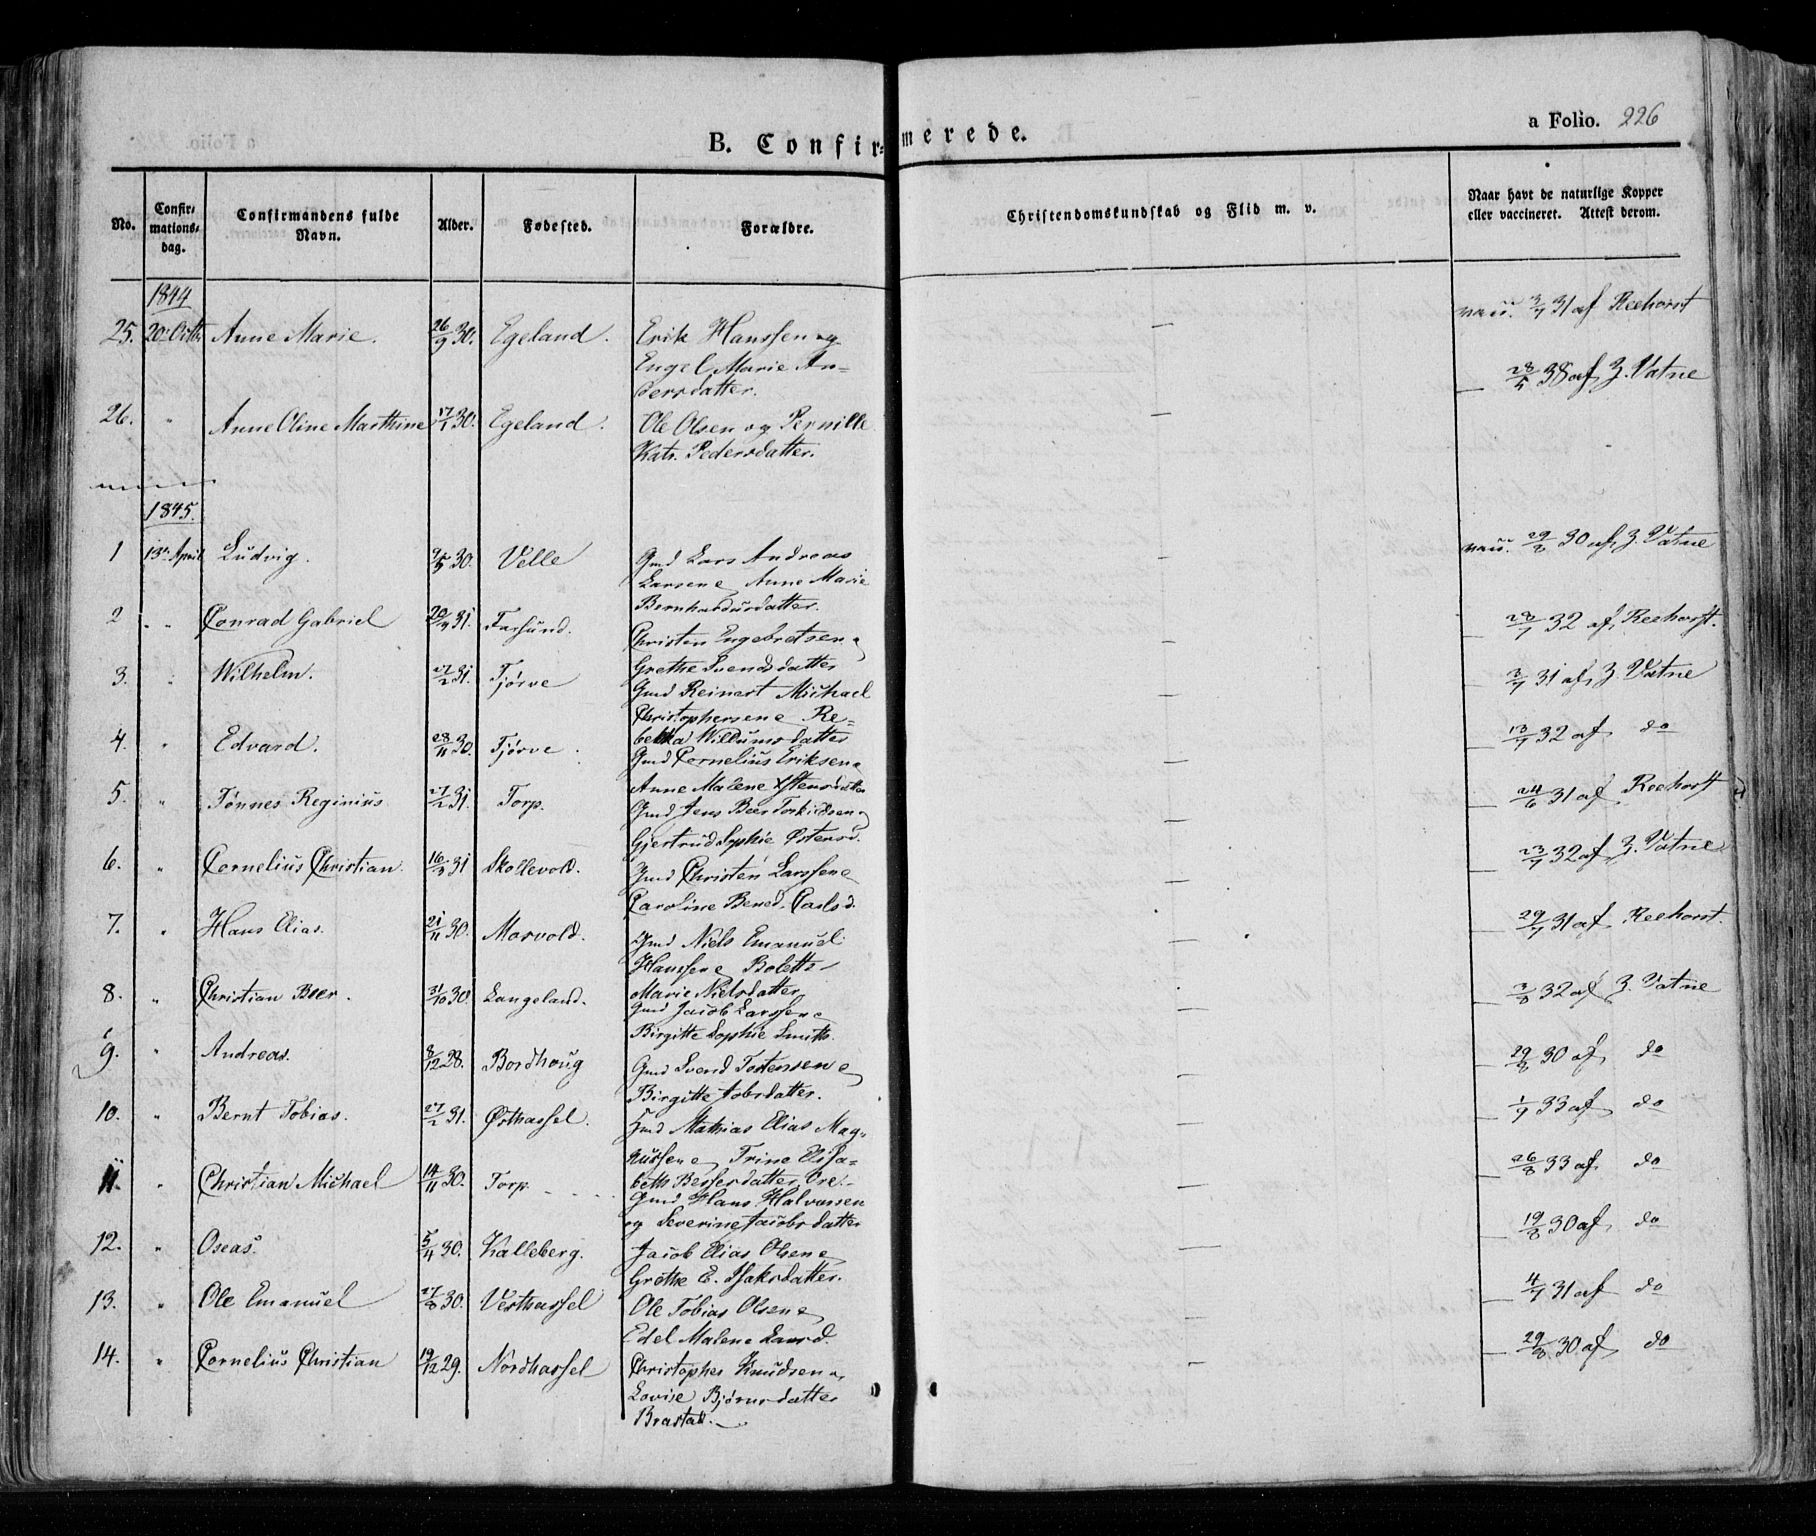 B. Confirmerede.
a Folio. 226
No.
Confir-
mations-
dag.
Confirmandens fulde
Navn.
Alder.
Fødested.
Forældre.
Christendomskundskab og Flid m. v.
Naar havt de naturlige Kopper
eller vaccineret. Attest derom.
1844
25. 20. Octbr Anne Marie. 26/9 30. Egeland. Erik Hanssen og — vacc. 3/7 31 af Reehorst
Engel Marie An-
dersdatter.
26. " Anne Oline Marthine 17/1 30. Egeland. Ole Olsen og Pernille — — 28/5 38 af Z. Vatne
Katr. Pedersdatter.
1845.
1 13de April Ludvig. 9/5 30. Velle Gmd Lars Andreas — vacc. 29/8 30 af Z. Vatne
Larsen e Anne Marie
Bernhardusdatter.
2 " Conrad Gabriel 20/4 31. Farsund. Christen Engebretsen e — — 28/7 32 af Reehorst.
Grethe Svendsdatter
3. " Wilhelm. 27/2 31. Tjørve Gmd Reinert Michael — — 3/7 31 af Z. Vatne
Christophersen e Re-
bekka Willumsdatter
4. " Edvard. 28/11 30. Tjørve. Gmd Cornelius Eriksen e — — 13/7 32 af do
Anne Malene Østensdatter
5. " Tønnes Reginius 27/2 31. Torp. Gmd Jens Beer Torkildsen e — — 24/6 31 af Reehorst
Gjertrud Sophie Østensd.
6. " Cornelius Christian. 16/3 31 Skollevold. Gmd Christen Larssen e — — 23/7 32 af Z. Vatne
Caroline Bened. Carlsd.
7. " Hans Elias. 21/11 30. Marvold. Gmd Niels Emanuel — — 29/7 31 af Reehorst.
Hanssen e Bolette
Marie Nielsdatter
8. " Christian Beer. 31/10 30. Langeland. Gmd Jacob Larssen e — — 3/8 32 af Z. Vatne
Birgitte Sophie Smith.
9. " Andreas. 8/12 28. Bordhoug Gmd Svend Tostensen e — — 29/8 30 af do
Birgitte Jobsdatter.
10. " Bernt Tobias. 27/2 31. Østhassel. Gmd Mathias Elias Mag- — — 1/7 33 af do
nussen e Trine Elisa-
beth Bessesdatter Ore.
11. " Christian Michael 14/11 30. Torp. Gmd Hans Halvorsen — — 26/8 33 af do
og Severine Jacobsdatter
12. " Oseas. 5/4 30. Kalleberg. Jacob Elias Olsen e — — 19/8 30 af do
Grethe E. Isaksdatter.
13. " Ole Emanuel 27/8 30. Vesthassel Ole Tobias Olsen e — 4/7 31 af do
Edel Malene Larsd.
14. " Cornelius Christian 19/12 29. Nordhassel Christopher Knudsen e — — 29/8 30 af do
Lovise Bjørnsdatter
Brastad.